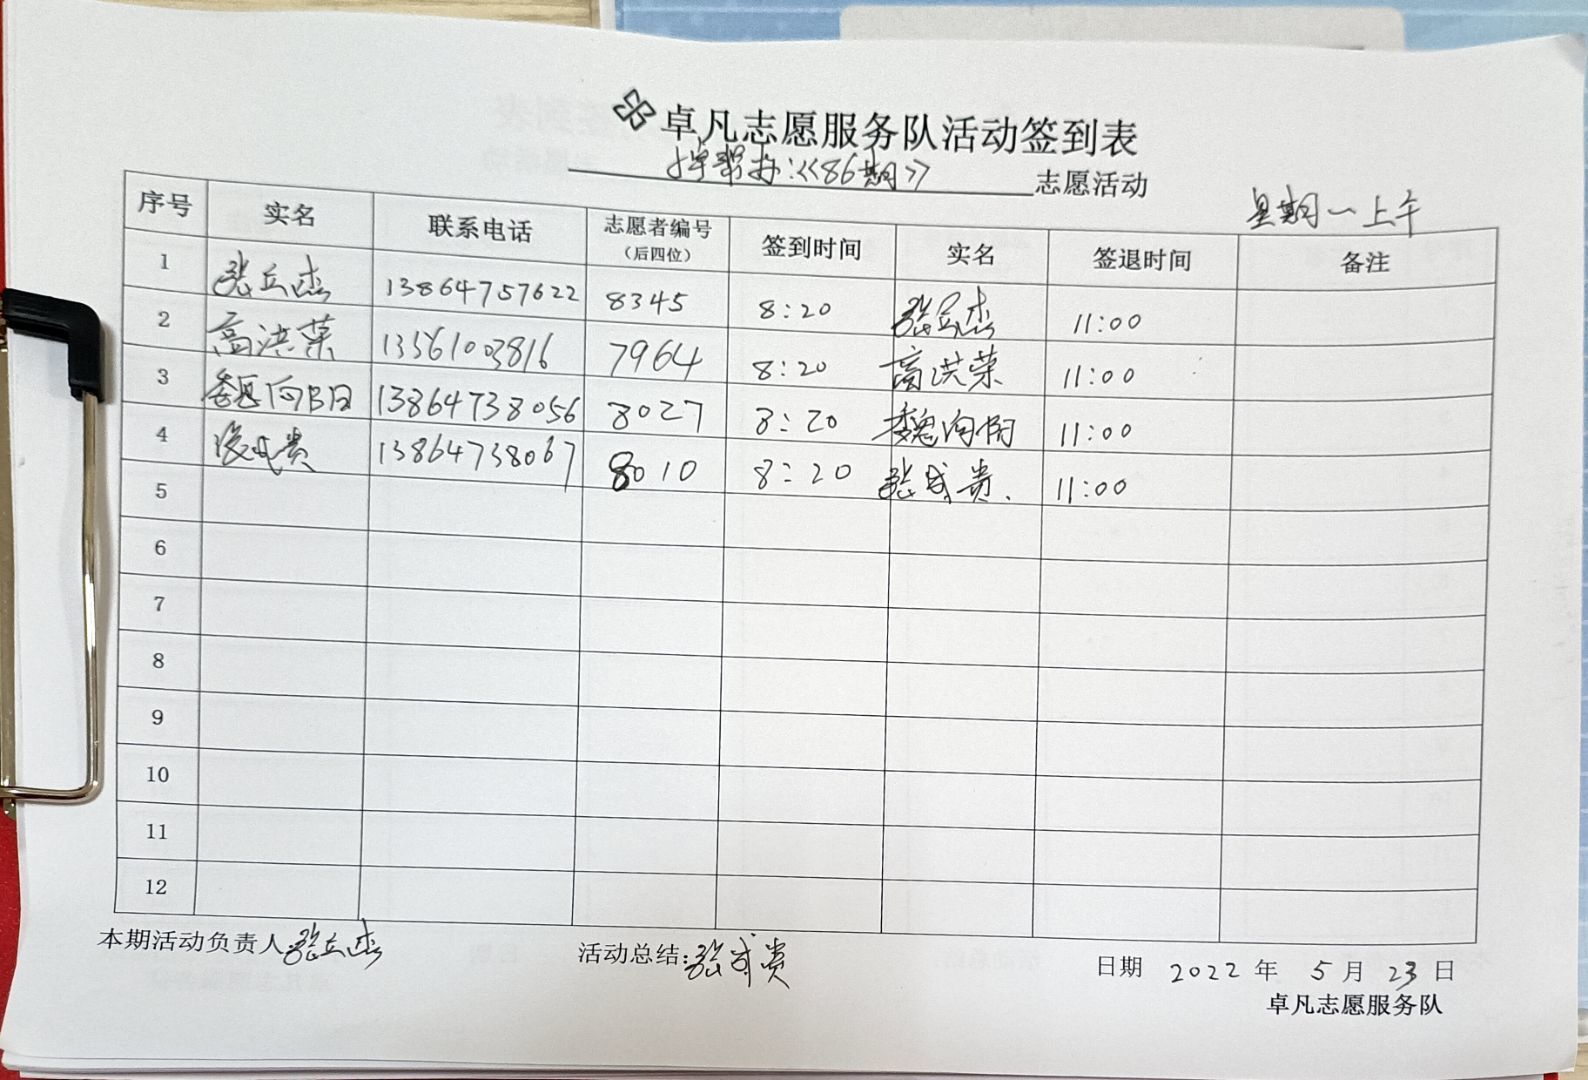 卓凡志愿服务队活动签到表
《86期》 志愿活动
星期一上午
序号 实名 联系电话 志愿者编号（后四位） 签到时间 实名 签退时间 备注
1 张立杰 13864757622 8345 8:20 张立杰 11:00
2 高洪荣 13561003816 7964 8:20 高洪荣 11:00
3 魏向阳 13864738056 8027 8:20 魏向阳 11:00
4 张成贵 13864738067 8010 8:20 张成贵 11:00
5
6
7
8
9
10
11
12
本期活动负责人:张立杰 活动总结:张成贵 日期 2022 年 5 月 23 日
卓凡志愿服务队